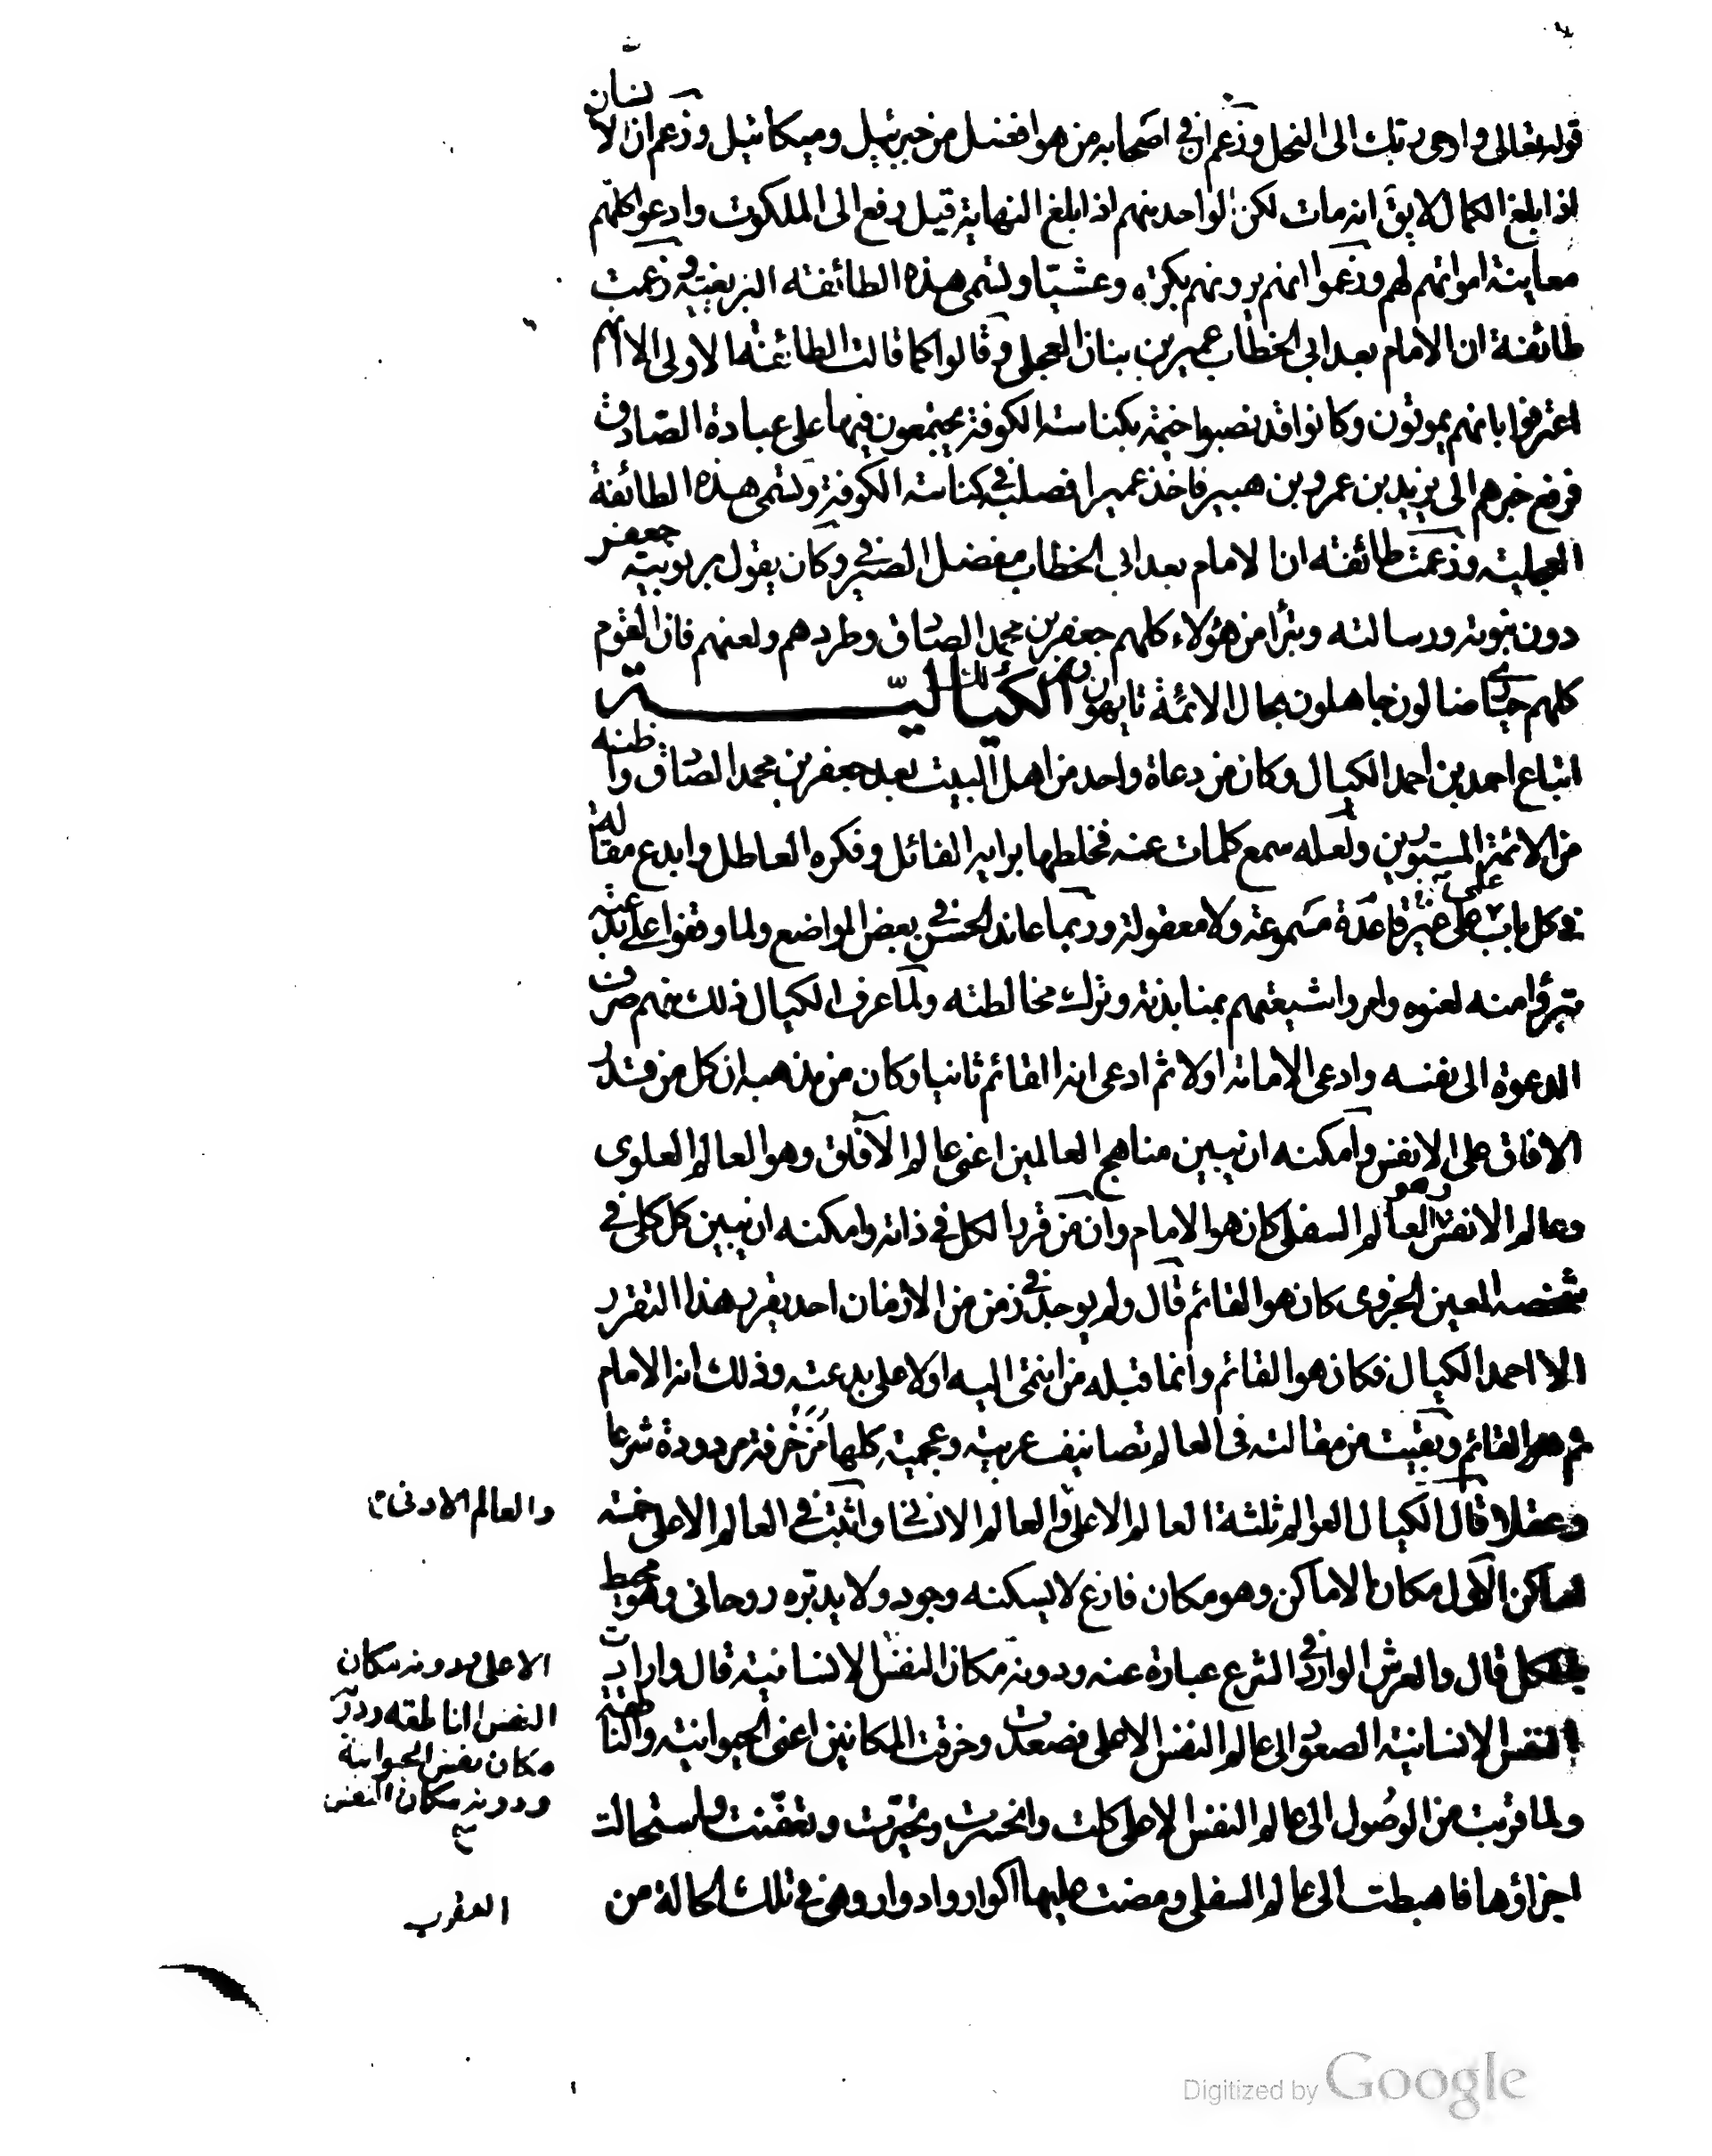 قوله تعالى واوحى ربك الى النحل وزعم ان في اصحابه من هو افضل من جبرئيل وميكائيل وزعم ان الانسان
اذا بلغ الكمال لا يق انه مات لكن الواحد منهم اذا بلغ النهاية قيل رفع الى الملكوت وادعوا كلهم
معاينة امواتهم لهم وزعموا انهم يرونهم بكرة وعشيا ولتسمى هذه الطائفه البزيغيه وزعمت
طائفة ان الامام بعد ابي الخطاب عمير بن بنان العجلي وقالوا كما قالت الطائفة الاولى الا انهم
اعترفوا بانهم يموتون وكانوا قد نصبوا خيمة بكناسة الكوفة يجتمعون فيها على عبادة الصادق
فرفع خبرهم الى يزيد بن عمرو بن هبير فاخذ عميرا فصلبه في كناسة الكوفة وتسمى هذه الطائفة
العجليه وزعمت طائفه ان الامام بعد ابي الخطاب مفضل الصيرفي وكان يقول بربوبية جعفر
دون نبوته ورسالته وتبرأ من هؤلاء كلهم جعفر بن محمد الصادق وطردهم ولعنهم فان القوم
كلهم حيارى ضالون جاهلون بحال الائمة تايهون ومن ذلك الكياليـــة
اتباع احمد بن احمد الكيال وكان من دعاة واحد من اهل البيت بعد جعفر بن محمد الصادق واظنه
من الائمة المستورين ولعله سمع كلمات عنه فخلطها برايه الفائل وفكره العاطل وابدع مقالة
في كل باب على غير قاعدة مسموعة ولا معقولة وربما عاند الحس في بعض المواضع ولما وقفوا على بدعته
تبرؤا منه لعنوه وامروا شيعتهم بمنابذته وترك مخالطته ولما عرف الكيال ذلك منهم صرف
الدعوة الى نفسه وادعى الامامة اولا ثم ادعى انه القائم ثانيا وكان من مذهبه ان كل من قدر
الافاق على الانفس وامكنه ان يبين مناهج العالمين اعنى عالم الآفاق وهو العالم العلوى
وعالم الانفس وهو العالم السفلي كان هو الامام وان من قرر الكل في ذاته وامكنه ان يبين كل كلي في
شخصه المعين الجزوى كان هو القائم قال ولم يوجد في زمن من الازمان احد يقرر هذا التقرير
الا احمد الكيال فكان هو القائم وانما قبله من انتمى اليه اولا على بدعته وذلك انه الامام
ثم هو القائم وبقيت من مقالته في العالم تصانيف عربيه وعجمية كلها مزخرفة مردودة شرعا
وعقلا قال الكيال العوالم ثلثة العالم الاعلى والعالم الانساني واثبت في العالم الاعلى خمسة
والعالم الادنى
اماكن الاول مكان الاماكن وهو مكان فارغ لا يسكنه وجود ولا يدبره روحاني وهو محيط
بالكل قال والعرش الوارد في الشرع عبارة عنه ودونه مكان النفس الانسانية قال وارادت
الاعلى ودونه مكان
النفس الناطقه ودونه
مكان نفس الحيوانية
ودونه مكان النفس
النفس الانسانية الصعود الى عالم النفس الاعلى فصعدت وخرقت المكانين اعنى الحيوانية والناطقة
ولما قربت من الوصول الى عالم النفس الاعلى كلت وانحسرت وتحيرت وتعفنت واستحالت
اجزاؤها فاهبطت الى عالم السفلي ومضت عليها اكوار وادوار وهي في تلك الحالة من
العقوب
Digitized by Google